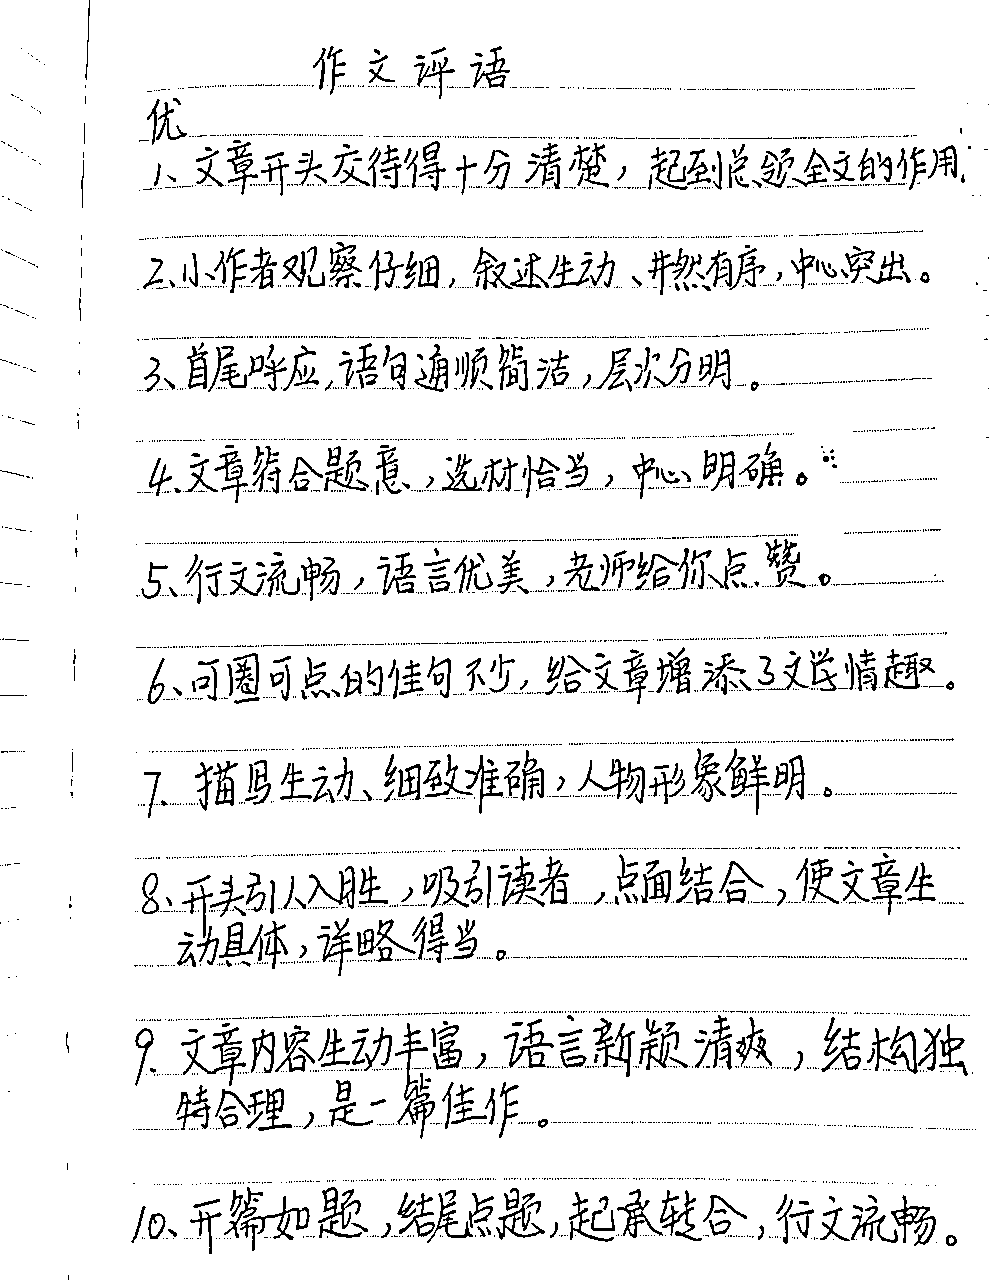 作文评语
优
1、文章开头交待得十分清楚，起到总领全文的作用.
2、小作者观察仔细，叙述生动、井然有序，中心突出。
3、首尾呼应，语句通顺简洁，层次分明。
4、文章符合题意，选材恰当，中心明确。
5、行文流畅，语言优美，老师给你点赞。
6、可圈可点的佳句不少，给文章增添了文学情趣。
7、描写生动、细致准确，人物形象鲜明。
8、开头引人入胜，吸引读者，点面结合，使文章生
动具体，详略得当。
9、文章内容生动丰富，语言新颖清爽，结构独
特合理，是一篇佳作。
10、开篇如题，结尾点题，起承转合，行文流畅。